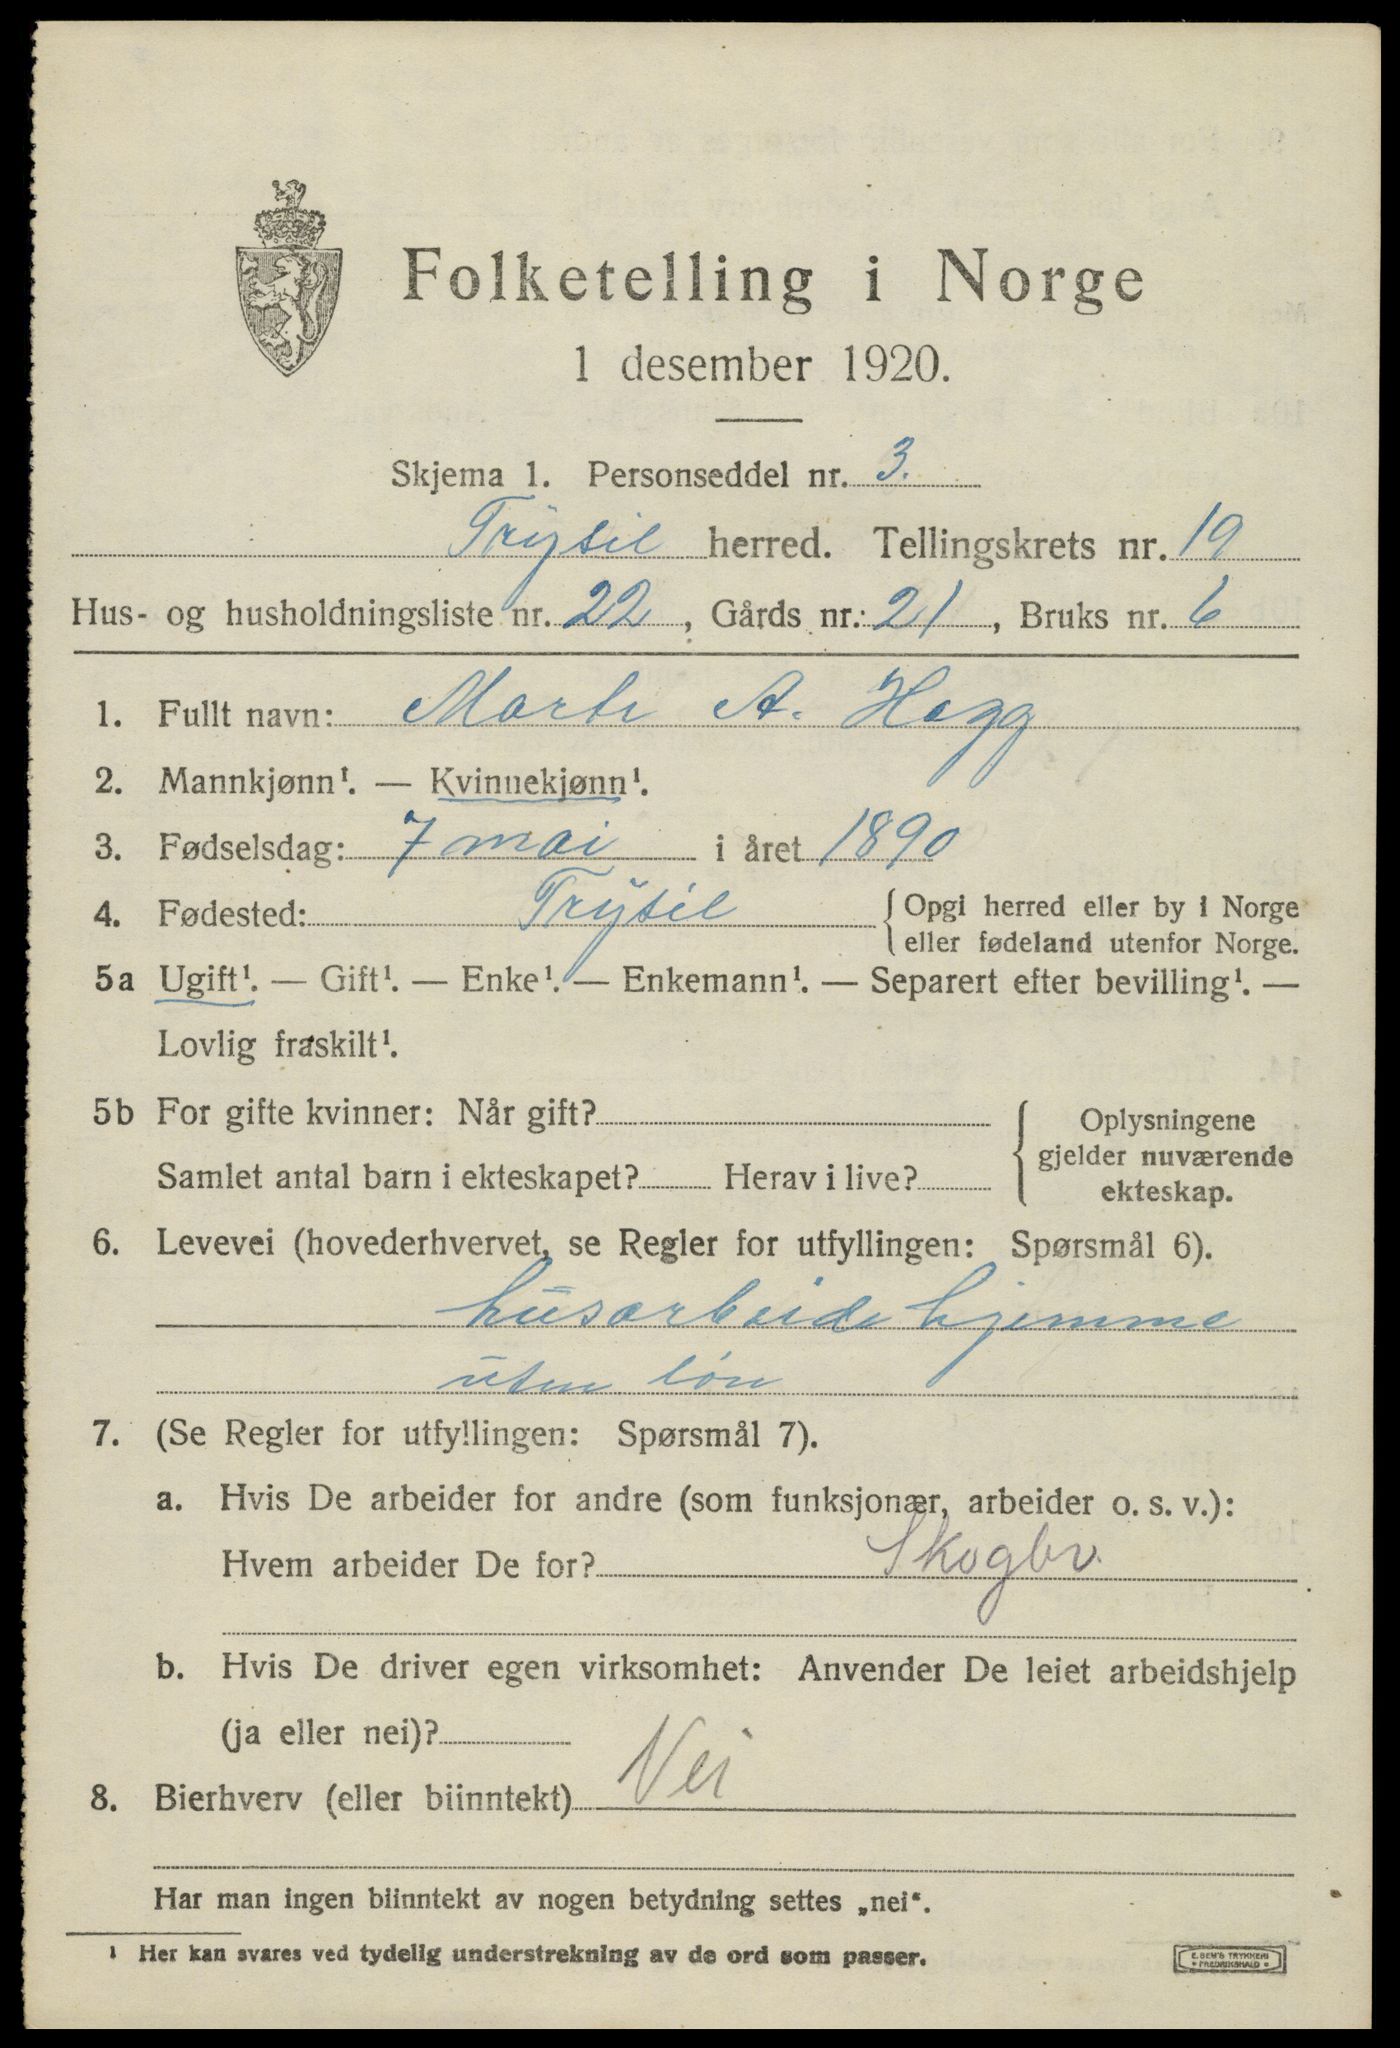 Folketelling i Norge
1 desember 1920.
Skjema 1. Personseddel nr. 3.
Trysil herred. Tellingskrets nr. 19
Hus- og husholdningsliste nr. 22, Gårds nr.: 21, Bruks nr. 6
1. Fullt navn: Marte A. Hagg
2. Mannkjønn¹. — Kvinnekjønn¹.
3. Fødselsdag: 7 mai i året 1890
4. Fødested: Trysil { Opgi herred eller by i Norge
eller fødeland utenfor Norge.
5a Ugift¹. — Gift¹. — Enke¹. — Enkemann¹. — Separert efter bevilling¹. —
Lovlig fraskilt¹.
5b For gifte kvinner: Når gift?
Samlet antal barn i ekteskapet? Herav i live?
{ Oplysningene
gjelder nuværende
ekteskap.
6. Levevei (hovederhvervet, se Regler for utfyllingen: Spørsmål 6).
husarbeide hjemme
uten løn
7. (Se Regler for utfyllingen: Spørsmål 7).
a. Hvis De arbeider for andre (som funksjonær, arbeider o. s. v.):
Hvem arbeider De for? Skogbr.
b. Hvis De driver egen virksomhet: Anvender De leiet arbeidshjelp
(ja eller nei)?
8. Bierhverv (eller biinntekt) Nei
Har man ingen biinntekt av nogen betydning settes „nei“.
¹ Her kan svares ved tydelig understrekning av de ord som passer.
E. SEM'S TRYKKERI
• FREDRIKSHALD •